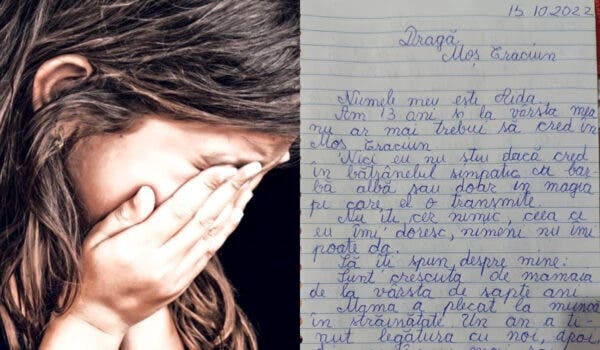 15.10.2022
Dragă
Moș Crăciun
Numele meu este Aida.
Am 13 ani și la vârsta mea
nu ar mai trebui să cred în
Moș Crăciun
Nici eu nu știu dacă cred
în bătrânelul simpatic cu bar-
bă albă sau doar în magia
pe care el o transmite.
Nu îți cer nimic, ceea ce
eu îmi doresc, nimeni nu îmi
poate da.
Să îți spun despre mine:
Sunt crescută de mamaia
de la vârsta de șapte ani
Mama a plecat la muncă
în străinătate. Un an a ți-
nut legătura cu noi, apoi,